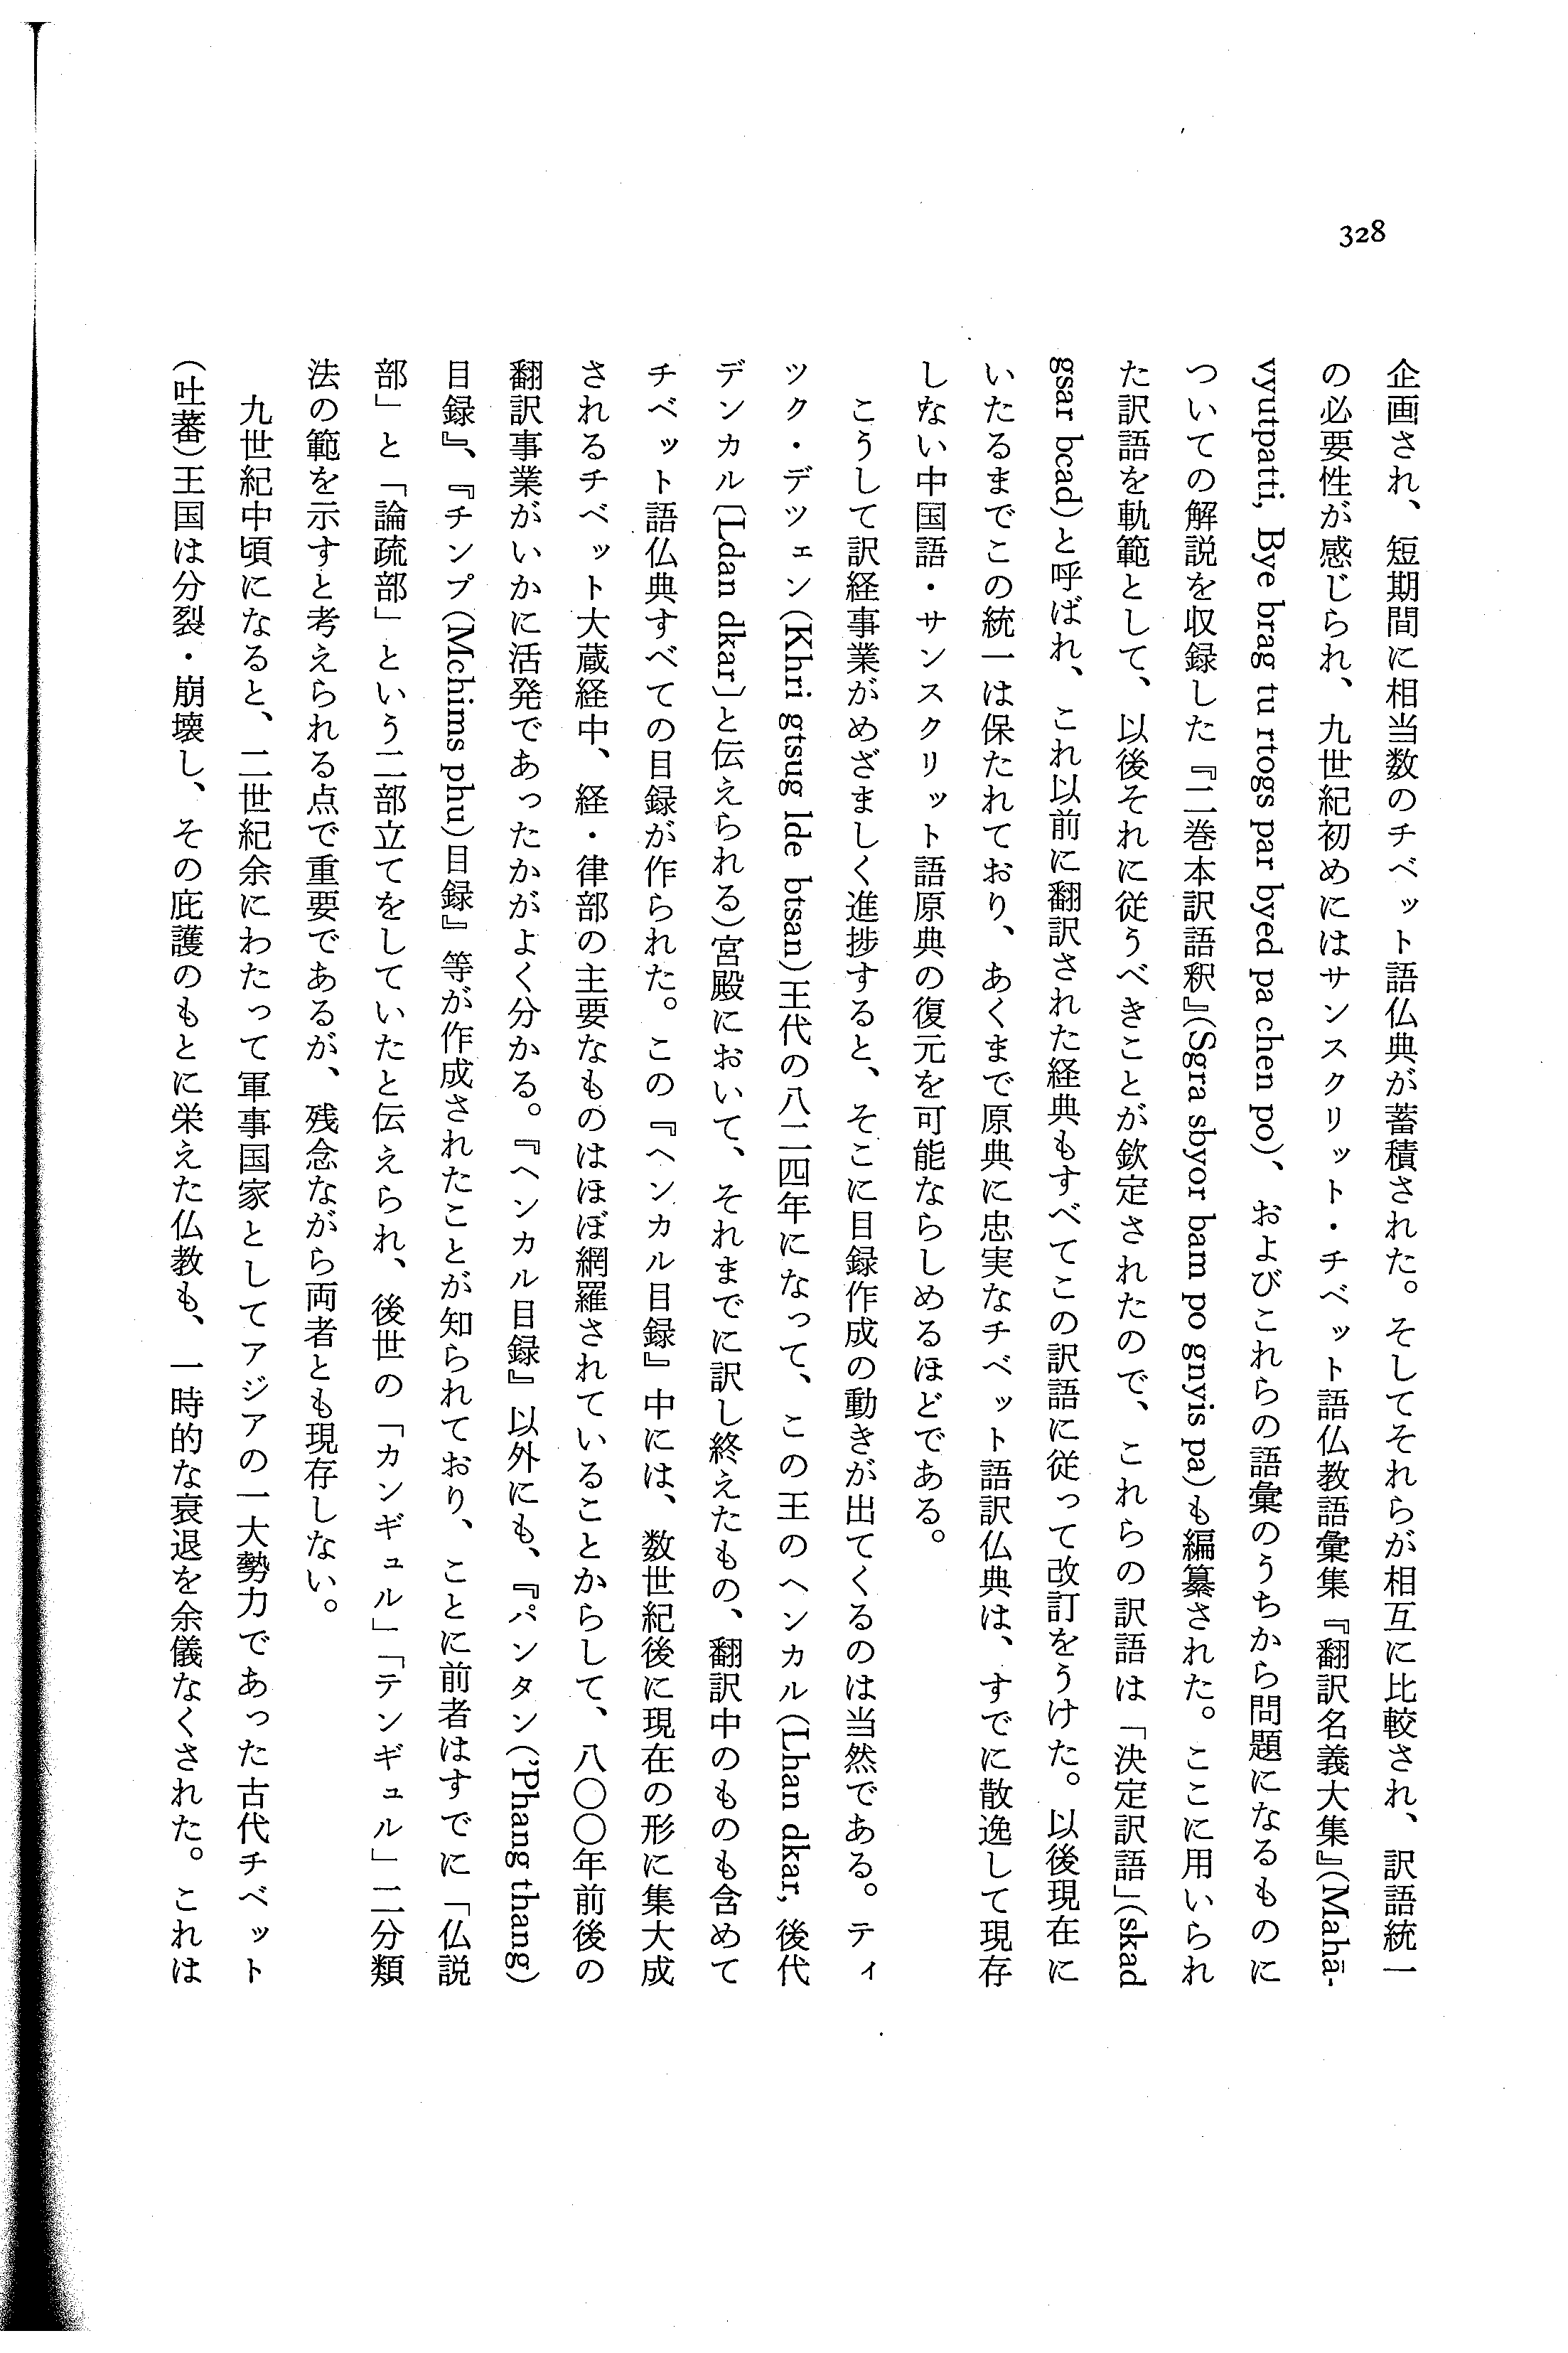 328
企画され、短期間に相当数のチベット語仏典が蓄積された。そしてそれらが相互に比較され、訳語統一
の必要性が感じられ、九世紀初めにはサンスクリット・チベット語仏教語彙集『翻訳名義大集』(Mahā-
vyutpatti, Bye brag tu rtogs par byed pa chen po)、およびこれらの語彙のうちから問題になるものに
ついての解説を収録した『二巻本訳語釈』(Sgra sbyor bam po gnyis pa)も編纂された。ここに用いられ
た訳語を軌範として、以後それに従うべきことが欽定されたので、これらの訳語は「決定訳語」(skad
gsar bcad)と呼ばれ、これ以前に翻訳された経典もすべてこの訳語に従って改訂をうけた。以後現在に
いたるまでこの統一は保たれており、あくまで原典に忠実なチベット語訳仏典は、すでに散逸して現存
しない中国語・サンスクリット語原典の復元を可能ならしめるほどである。
こうして訳経事業がめざましく進捗すると、そこに目録作成の動きが出てくるのは当然である。ティ
ツク・デツェン(Khri gtsug lde btsan)王代の八二四年になって、この王のヘンカル(Lhan dkar, 後代
デンカル〔Ldan dkar〕と伝えられる)宮殿において、それまでに訳し終えたもの、翻訳中のものも含めて
チベット語仏典すべての目録が作られた。この『ヘンカル目録』中には、数世紀後に現在の形に集大成
されるチベット大蔵経中、経・律部の主要なものはほぼ網羅されていることからして、八〇〇年前後の
翻訳事業がいかに活発であったかがよく分かる。『ヘンカル目録』以外にも、『パンタン('Phang thang)
目録』、『チンプ(Mchims phu)目録』等が作成されたことが知られており、ことに前者はすでに「仏説
部」と「論疏部」という二部立てをしていたと伝えられ、後世の「カンギュル」「テンギュル」二分類
法の範を示すと考えられる点で重要であるが、残念ながら両者とも現存しない。
九世紀中頃になると、二世紀余にわたって軍事国家としてアジアの一大勢力であった古代チベット
(吐蕃)王国は分裂・崩壊し、その庇護のもとに栄えた仏教も、一時的な衰退を余儀なくされた。これは